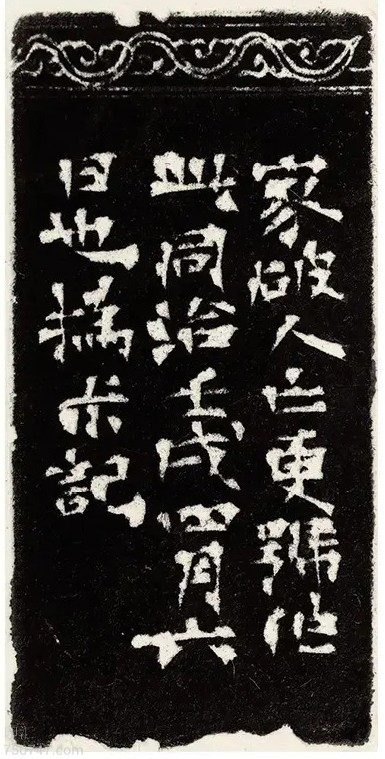 家破人亡更號作
此同治壬戌四月六
日也撝尗記